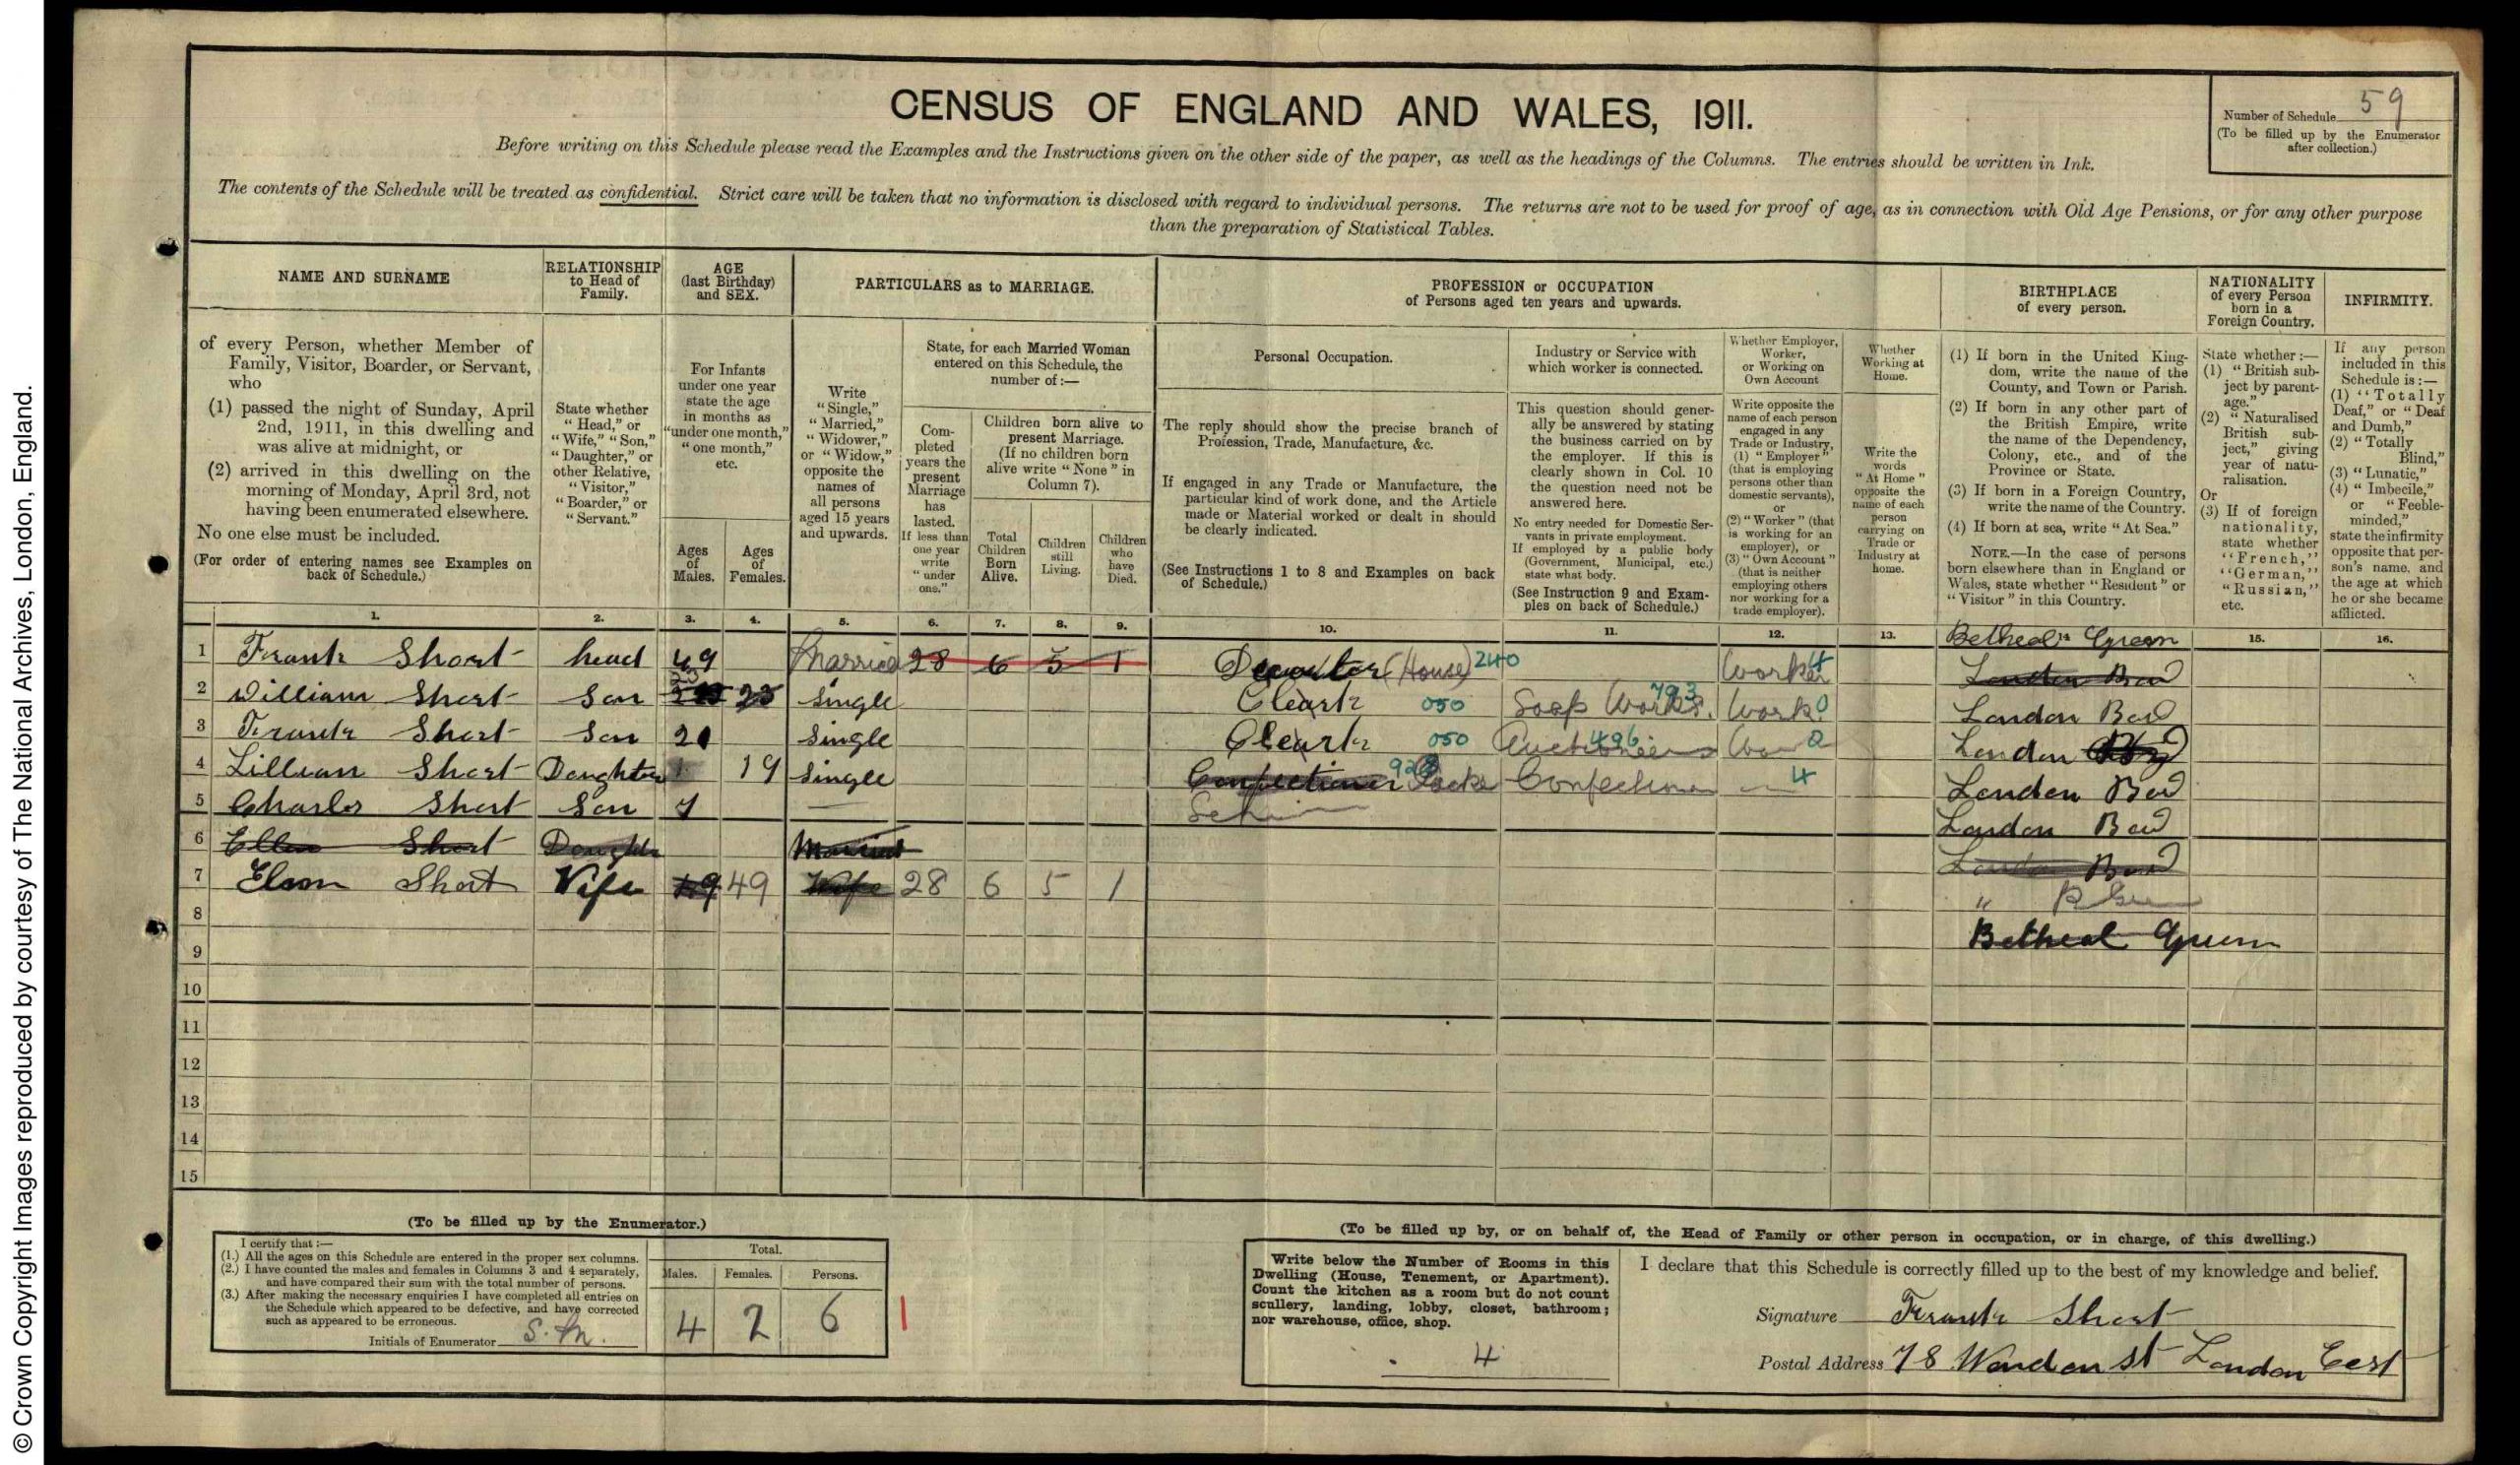 © Crown Copyright Images reproduced by courtesy of The National Archives, London, England.
CENSUS OF ENGLAND AND WALES, 1911.
Number of Schedule 59
(To be filled up by the Enumerator after collection.)
Before writing on this Schedule please read the Examples and the Instructions given on the other side of the paper, as well as the headings of the Columns. The entries should be written in Ink.
The contents of the Schedule will be treated as confidential. Strict care will be taken that no information is disclosed with regard to individual persons. The returns are not to be used for proof of age, as in connection with Old Age Pensions, or for any other purpose
than the preparation of Statistical Tables.
NAME AND SURNAME
of every Person, whether Member of Family, Visitor, Boarder, or Servant, who
(1) passed the night of Sunday, April 2nd, 1911, in this dwelling and was alive at midnight, or
(2) arrived in this dwelling on the morning of Monday, April 3rd, not having been enumerated elsewhere.
No one else must be included.
(For order of entering names see Examples on back of Schedule.)
RELATIONSHIP to Head of Family.
State whether "Head," or "Wife," "Son," "Daughter," or other Relative, "Visitor," "Boarder," or "Servant."
AGE (last Birthday) and SEX.
For Infants under one year state the age in months as "under one month," "one month," etc.
Ages of Males.
Ages of Females.
PARTICULARS as to MARRIAGE.
Write "Single," "Married," "Widower," or "Widow," opposite the names of all persons aged 15 years and upwards.
State, for each Married Woman entered on this Schedule, the number of :—
Completed years the present Marriage has lasted. If less than one year write "under one."
Children born alive to present Marriage. (If no children born alive write "None" in Column 7).
Total Children Born Alive.
Children still Living.
Children who have Died.
PROFESSION or OCCUPATION
of Persons aged ten years and upwards.
Personal Occupation.
The reply should show the precise branch of Profession, Trade, Manufacture, &c.
If engaged in any Trade or Manufacture, the particular kind of work done, and the Article made or Material worked or dealt in should be clearly indicated.
(See Instructions 1 to 8 and Examples on back of Schedule.)
Industry or Service with which worker is connected.
This question should generally be answered by stating the business carried on by the employer. If this is clearly shown in Col. 10 the question need not be answered here.
No entry needed for Domestic Servants in private employment. If employed by a public body (Government, Municipal, etc.) state what body.
(See Instruction 9 and Examples on back of Schedule.)
Whether Employer, Worker, or Working on Own Account
Write opposite the name of each person engaged in any Trade or Industry, (1) "Employer" (that is employing persons other than domestic servants), or (2) "Worker" (that is working for an employer), or (3) "Own Account" (that is neither employing others nor working for a trade employer).
Whether Working at Home.
Write the words "At Home" opposite the name of each person carrying on Trade or Industry at home.
BIRTHPLACE of every person.
(1) If born in the United Kingdom, write the name of the County, and Town or Parish.
(2) If born in any other part of the British Empire, write the name of the Dependency, Colony, etc., and of the Province or State.
(3) If born in a Foreign Country, write the name of the Country.
(4) If born at sea, write "At Sea."
NOTE.—In the case of persons born elsewhere than in England or Wales, state whether "Resident" or "Visitor" in this Country.
NATIONALITY of every Person born in a Foreign Country.
State whether :—
(1) "British subject by parentage."
(2) "Naturalised British subject," giving year of naturalisation.
Or
(3) If of foreign nationality, state whether "French," "German," "Russian," etc.
INFIRMITY.
If any person included in this Schedule is :—
(1) "Totally Deaf," or "Deaf and Dumb,"
(2) "Totally Blind,"
(3) "Lunatic,"
(4) "Imbecile," or "Feeble-minded,"
state the infirmity opposite that person's name, and the age at which he or she became afflicted.
1. 2. 3. 4. 5. 6. 7. 8. 9. 10. 11. 12. 13. 14 15. 16.
Betheal Green
1 Frank Short head 49 Married 28 6 5 1 Decorter (House) 240 Worker 4 London Bow
2 William Short Son 23 Single Cleark 050 Soap Works. 793 Work 0 London Bow
3 Frank Short Son 21 Single Cleark 050 Auctioneers 496 0 London
4 Lillian Short Daughter 19 Single Confectioner Packer Confectioner 4 London Bow
5 Charles Short Son 7 — London Bow
6 Ellen Short Daughter Married London Bow
7 Elson Short Wife 49 49 Wife 28 6 5 1 "
8 Betheal Green
9
10
11
12
13
14
15
(To be filled up by the Enumerator.)
I certify that :—
(1.) All the ages on this Schedule are entered in the proper sex columns.
(2.) I have counted the males and females in Columns 3 and 4 separately, and have compared their sum with the total number of persons.
(3.) After making the necessary enquiries I have completed all entries on the Schedule which appeared to be defective, and have corrected such as appeared to be erroneous.
Initials of Enumerator S. M.
Total.
Males. Females. Persons.
4 2 6 1
(To be filled up by, or on behalf of, the Head of Family or other person in occupation, or in charge, of this dwelling.)
Write below the Number of Rooms in this Dwelling (House, Tenement, or Apartment). Count the kitchen as a room but do not count scullery, landing, lobby, closet, bathroom; nor warehouse, office, shop.
4
I declare that this Schedule is correctly filled up to the best of my knowledge and belief.
Signature Frank Short
Postal Address 78 Wendon st London East